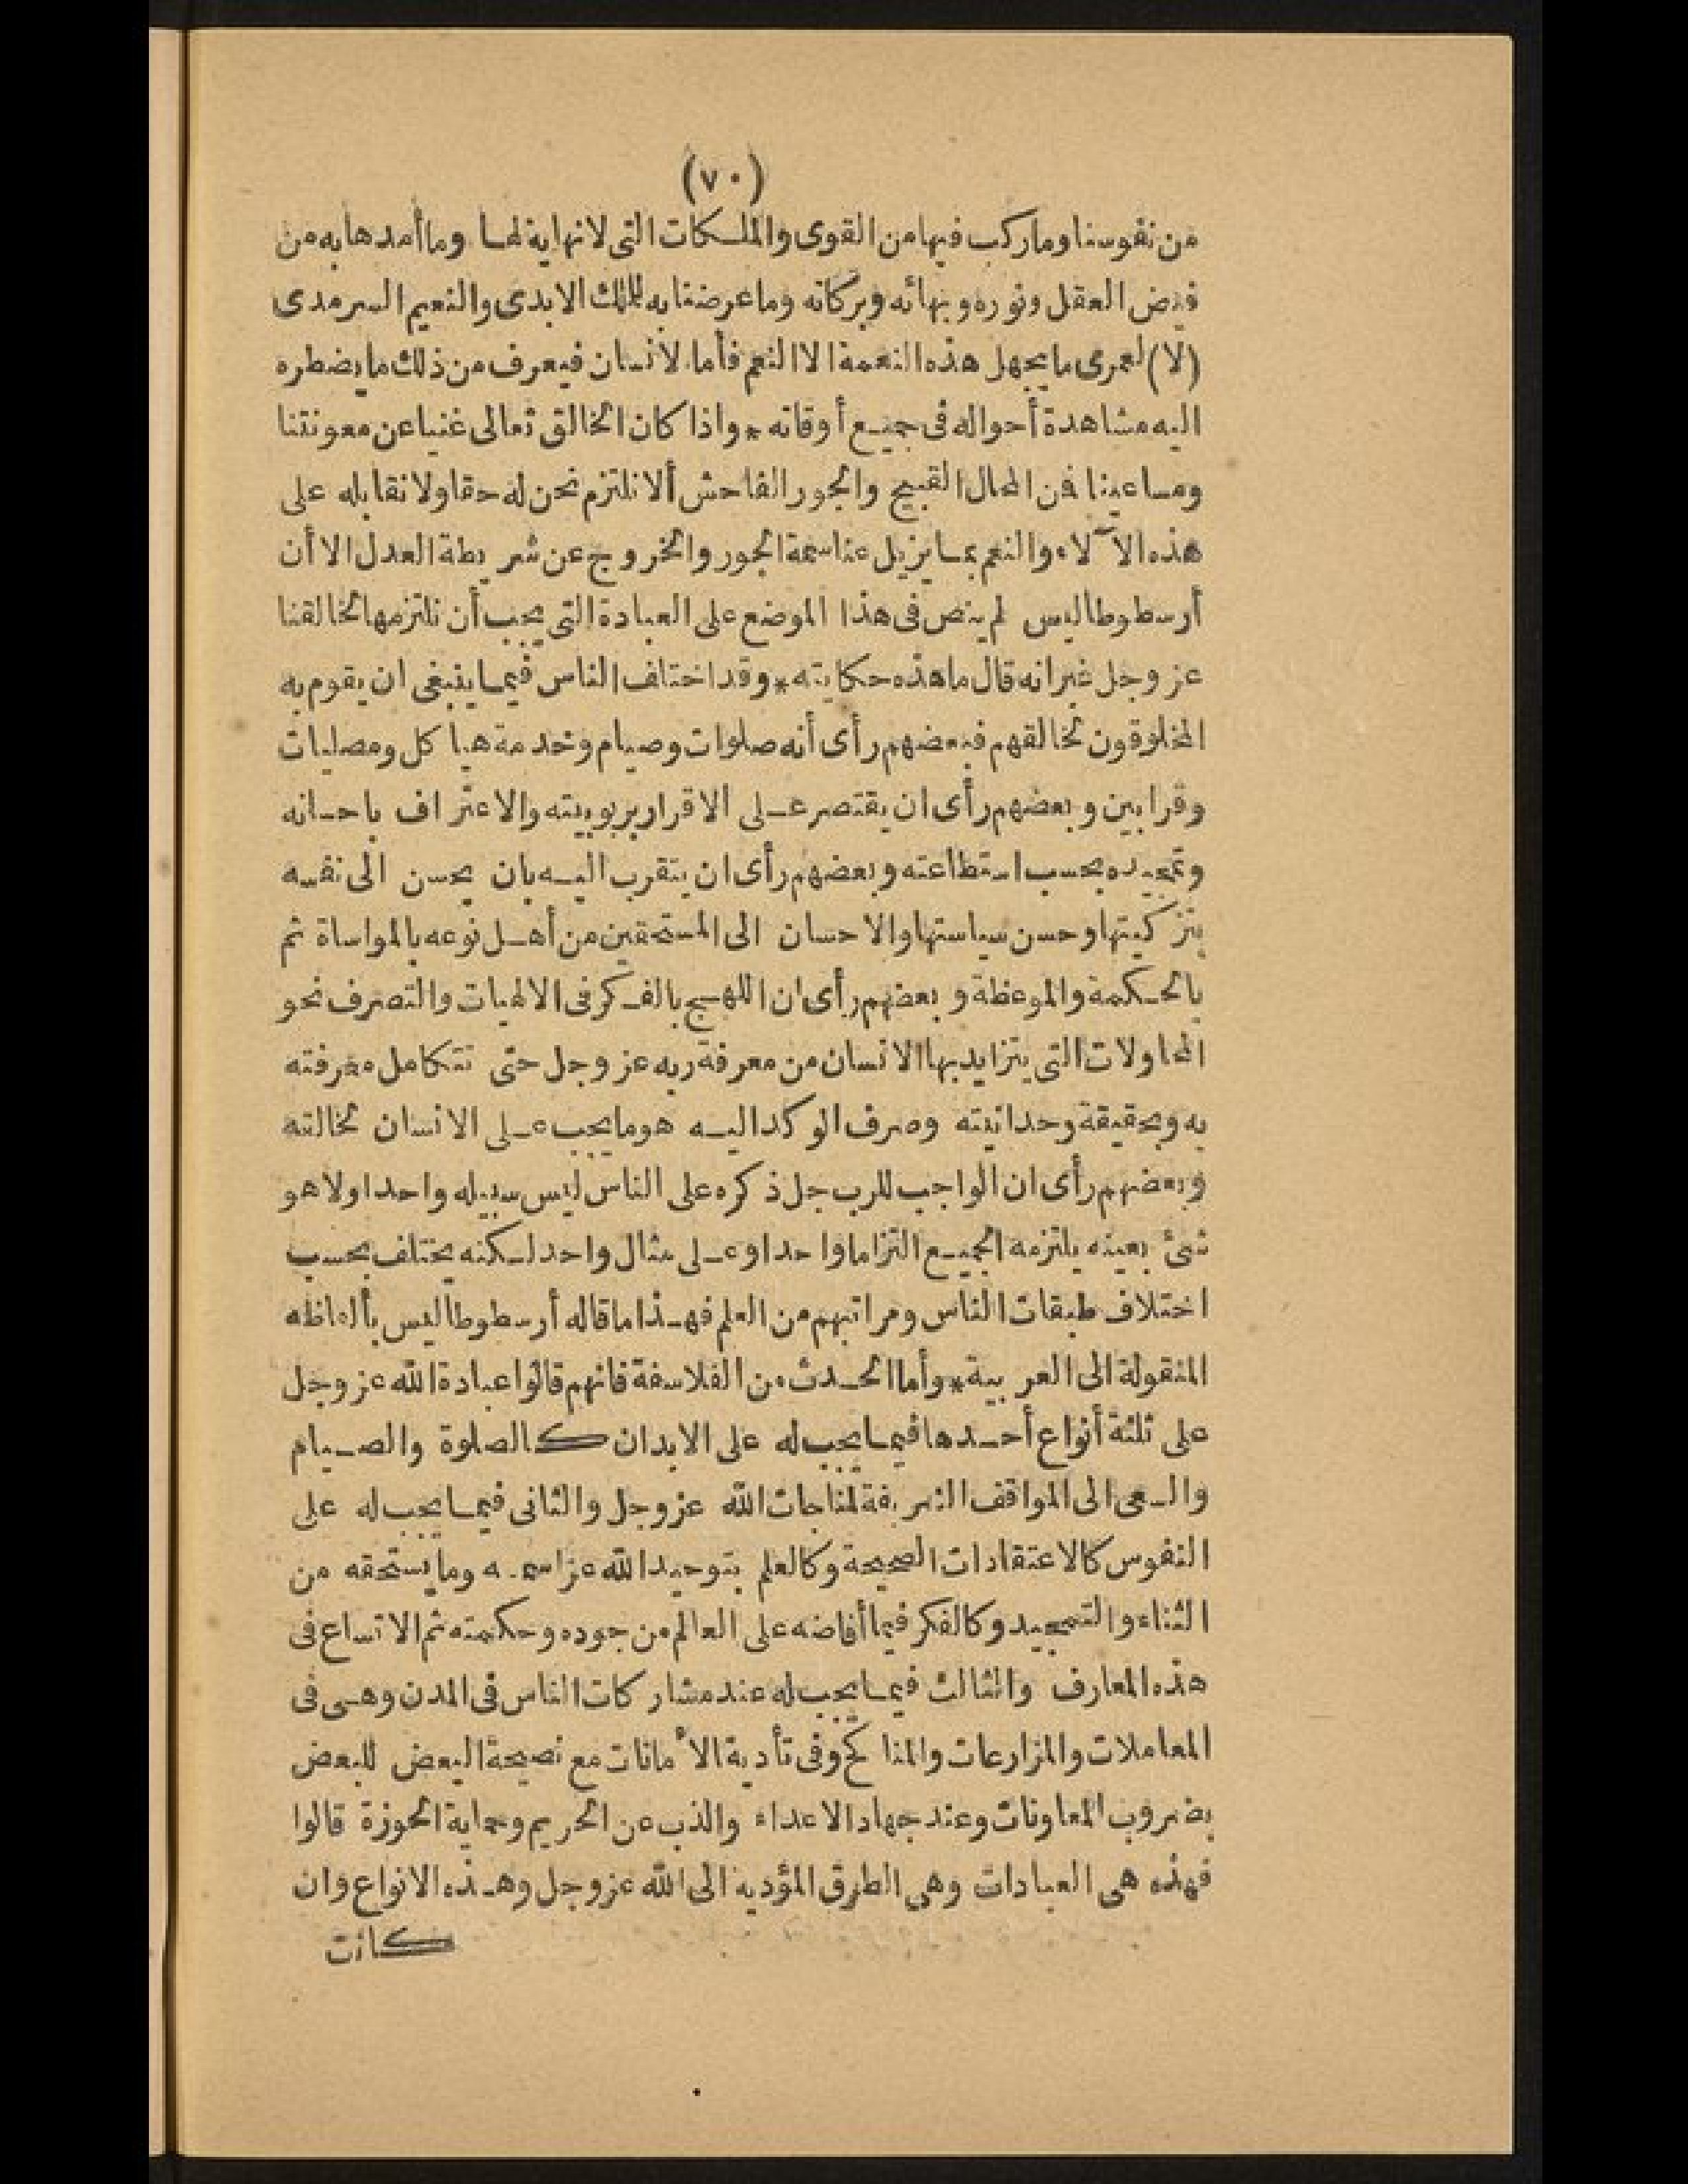 (٧٠)
من نفوسنا وما ركب فيها من القوى والملكات التى لا نهاية لها وما أمدها به من
فيض العقل ونوره وبهائه وبركاته وما عرضنا به للملك الابدى والنعيم السرمدى
(لا) لعمرى ما يجهل هذه النعمة الا النعم فأما الانسان فيعرف من ذلك ما يضطره
اليه مشاهدة أحواله فى جميع أوقاته * واذا كان الخالق تعالى غنيا عن معونتنا
ومساعينا فمن المحال القبيح والجور الفاحش ألا نلتزم نحن له حقا ولا نقابله على
هذه الآلاء والنعم بما يزيل عنا سمة الجور والخروج عن شريطة العدل الا أن
أرسطوطاليس لم ينص فى هذا الموضع على العبادة التى يجب أن نلتزمها لخالقنا
عز وجل غير انه قال ما هذه حكايته * وقد اختلف الناس فيما ينبغى ان يقوم به
المخلوقون لخالقهم فبعضهم رأى أنه صلوات وصيام وخدمة هياكل ومصليات
وقرابين وبعضهم رأى ان يقتصر على الاقرار بربوبيته والاعتراف باحسانه
وتمجيده بحسب استطاعته وبعضهم رأى ان يتقرب اليه بان يحسن الى نفسه
بتزكيتها وحسن سياستها والاحسان الى المستحقين من أهل نوعه بالمواساة ثم
بالحكمة والموعظة وبعضهم رأى ان اللهج بالفكر فى الالهيات والتصرف نحو
المحاولات التى يتزايد بها الانسان من معرفة ربه عز وجل حتى تتكامل معرفته
به وبحقيقة وحدانيته وصرف الوكد اليه هو ما يجب على الانسان لخالقه
وبعضهم رأى ان الواجب للرب جل ذكره على الناس ليس سبيله واحدا ولا هو
شئ بعينه يلتزمه الجميع التزاما واحدا وعلى مثال واحد لكنه يختلف بحسب
اختلاف طبقات الناس ومراتبهم من العلم فهذا ما قاله أرسطوطاليس بألفاظه
المنقولة الى العربية * وأما الحدث من الفلاسفة فانهم قالوا عبادة الله عز وجل
على ثلثة أنواع أحدها فيما يجب له على الابدان كالصلوة والصيام
والسعى الى المواقف الشريفة لمناجات الله عز وجل والثانى فيما يجب له على
النفوس كالاعتقادات الصحيحة وكالعلم بتوحيد الله عز اسمه وما يستحقه من
الثناء والتمجيد وكالفكر فيما أفاضه على العالم من جوده وحكمته ثم الاتساع فى
هذه المعارف والثالث فيما يجب له عند مشاركات الناس فى المدن وهى فى
المعاملات والمزارعات والمناكح وفى تأدية الأمانات مع نصيحة البعض للبعض
بضروب المعاونات وعند جهاد الاعداء والذب عن الحريم وحماية الحوزة قالوا
فهذه هى العبادات وهى الطرق المؤديه الى الله عز وجل وهذه الانواع وان
كانت